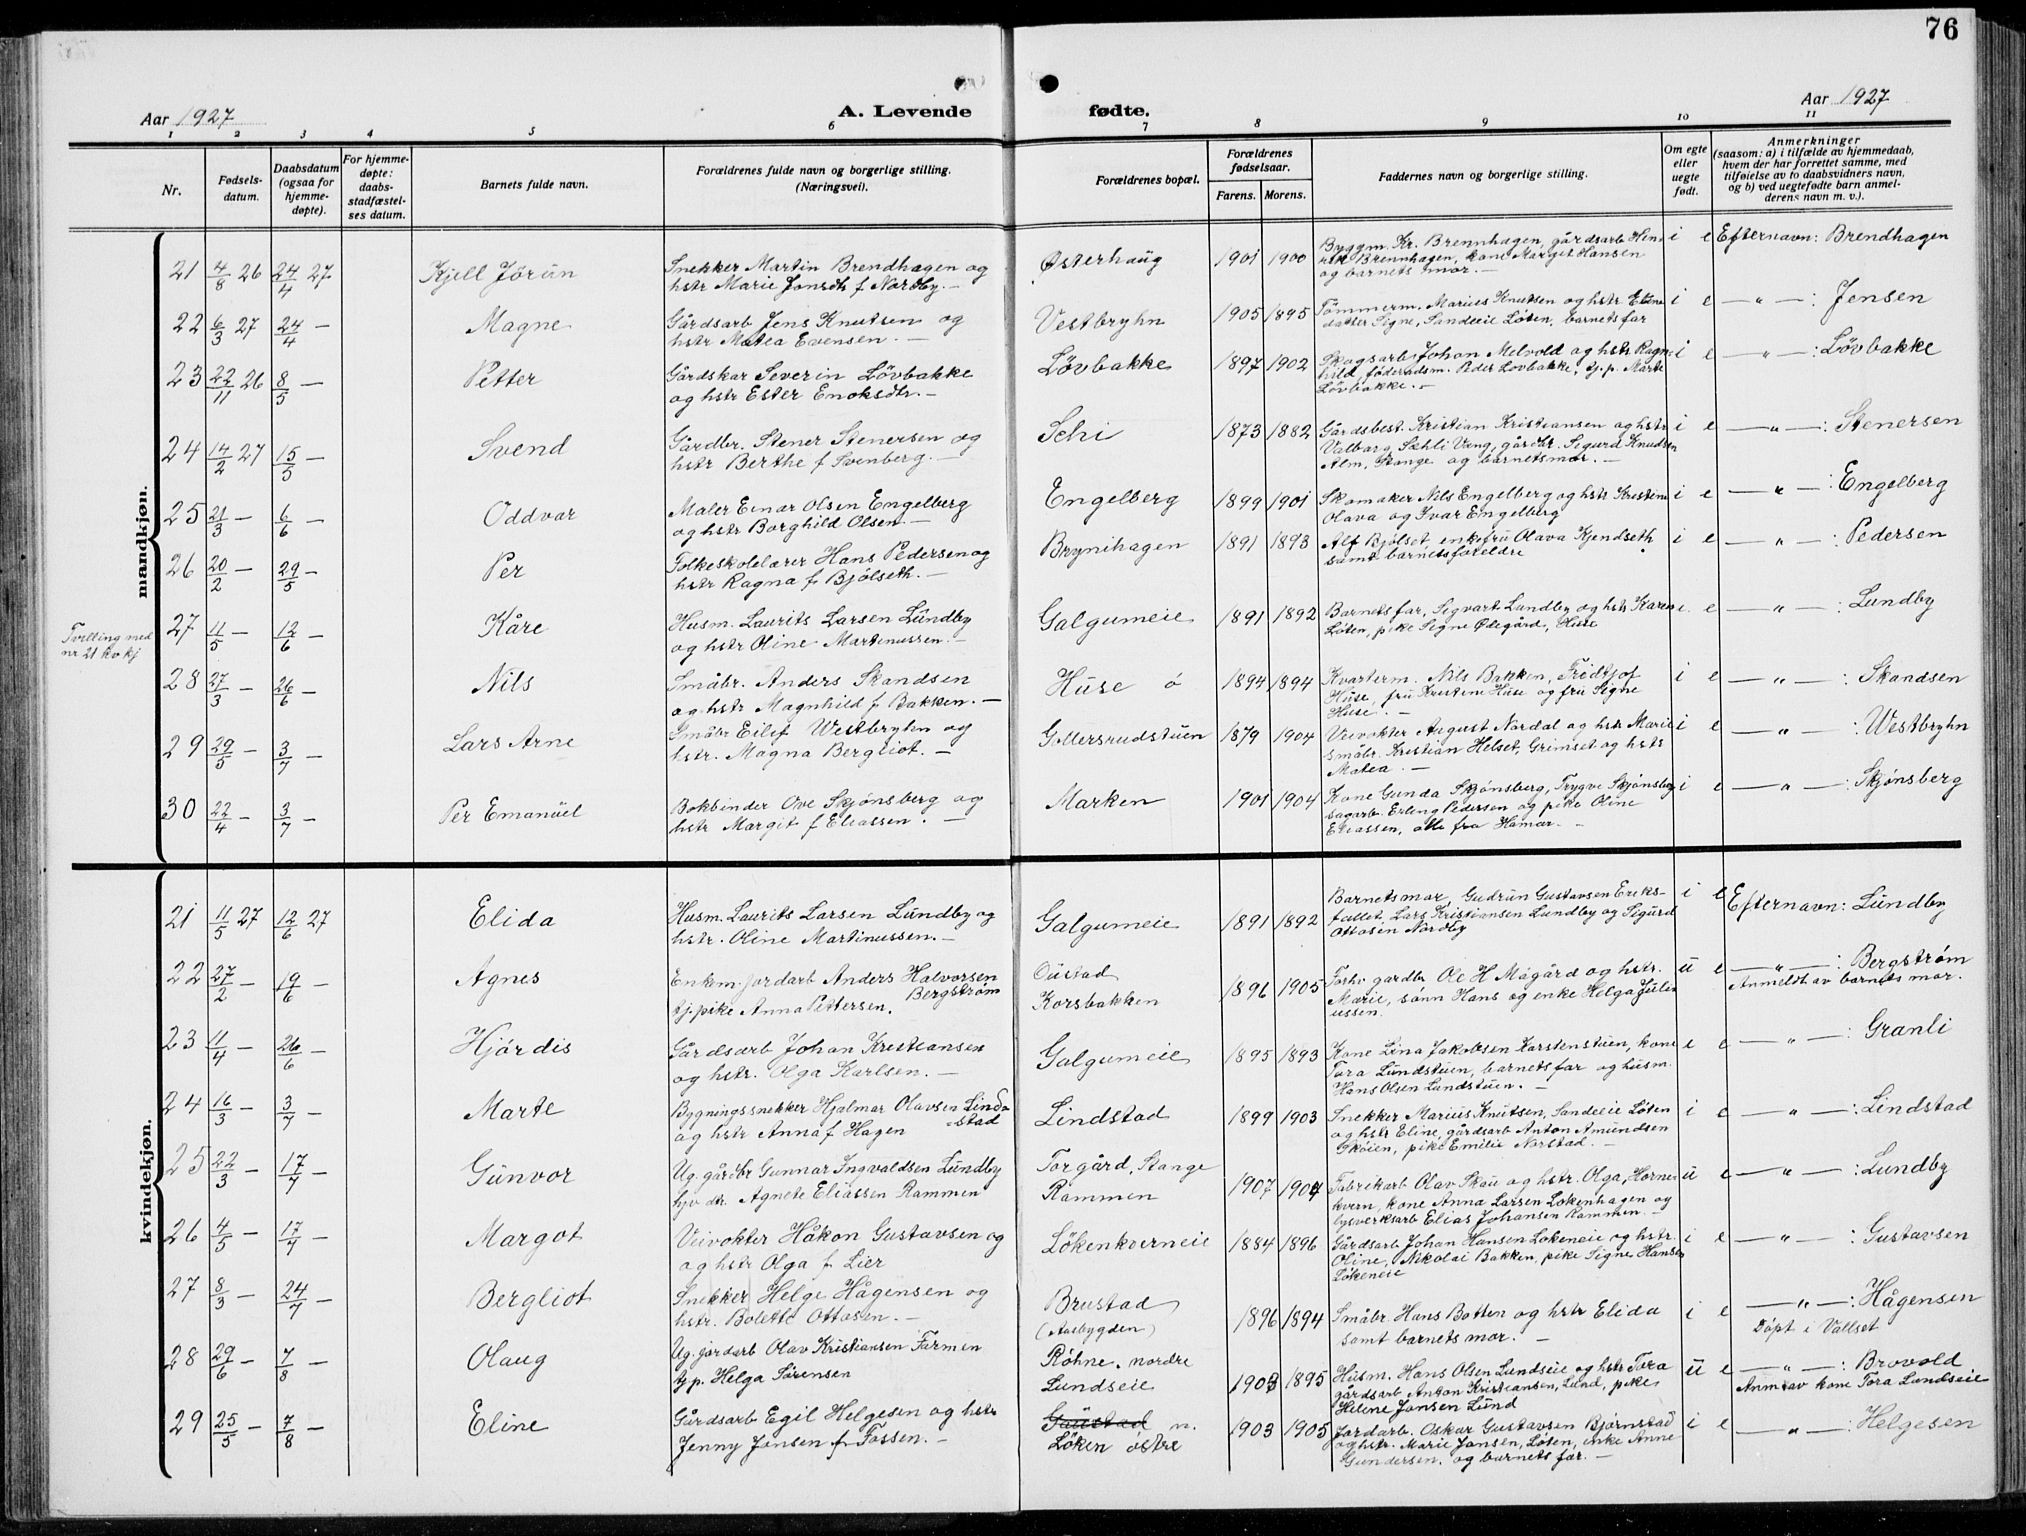 76
Aar 1927
A. Levende
fødte.
Aar 1927
1 2 3 4 5 6 7 8 9 10 11
Nr.
Fødsels-
datum.
Daabsdatum
(ogsaa for
hjemme-
døpte).
For hjemme-
døpte:
daabs-
stadfæstel-
ses datum.
Barnets fulde navn.
Forældrenes fulde navn og borgerlige stilling.
(Næringsvei).
Forældrenes bopæl.
Forældrenes
fødselsaar.
Farens. Morens.
Faddernes navn og borgerlige stilling.
Om egte
eller
uegte
født.
Anmerkninger
(saasom: a) i tilfælde av hjemmedaab,
hvem der har forrettet samme, med
tilføielse av to daabsvidners navn,
og b) ved uegtefødte barn anmel-
derens navn m. v.).
mandkjøn.
21 4/8 26 24/4 27 Kjell Jörun
Snekker Martin Brendhagen og
hstr Marie Jonsdtr f Nordby. —
Østerhaug 1901 1900
Byggm. Kr. Brennhagen, gårdsarb Hen-
rik Brennhagen, kone Margit Hansen
og barnets mor. —
i e Efternavn: Brendhagen
22 6/3 27 24/4 — Magne
Gårdsarb Jens Knutsen og
hstr Matea Evensen. —
Vestbryhn 1905 1895
Tömmerm. Marius Knutsen og hstr Eline
datter Signe, Sandeeie Löten, barnets far
i e — " — : Jensen
23 22/11 26 8/5 — Petter
Gårdskar Severin Lövbakke
og hstr Ester Enoksdtr. —
Lövbakke 1897 1902
Skogsarb Johan Melvold og hstr Ragn-
hild, föderådsm. Peder Lövbakke, tj.p. Marte
Lövbakke. —
i e — " — : Lövbakke
24 14/2 27 15/5 — Svend
Gårdbr. Stener Stenersen og
hstr Berthe f Svenberg. —
Schi 1873 1882
Gårdsbest. Kristian Kristiansen og hstr
Valborg, Sæhli Vang, gårdbr. Sigurd Knudsen
Alm, Stange og barnets mor. —
i e — " — : Stenersen
25 21/3 — 6/6 — Oddvar
Maler Einar Olsen Engelberg
og hstr Borghild Olsen. —
Engelberg 1899 1901
Skomaker Nils Engelberg og hstr Kristine
Olava og Ivar Engelberg
i e — " — : Engelberg
26 20/2 — 29/5 — Per
Folkeskolelærer Hans Pedersen og
hstr Ragna f Bjölseth. —
Brynihagen 1891 1893
Alf Bjölset, enkefru Olava Kjendseth
samt barnets foreldre
i e — " — : Pedersen
Tvilling med
nr 21 kv kj
27 11/5 — 12/6 — Kåre
Husm. Laurits Larsen Lundby
og hstr Oline Martinussen. —
Galgumeie 1891 1892
Barnets far, Sigvart Lundby og hstr Karen
Löten, pike Signe Ödegård, Huse
i e — " — : Lundby
28 27/3 — 26/6 — Nils
Småbr. Anders Skandsen
og hstr Magnhild f Bakken. —
Huse ö 1894 1894
Kvarterm. Nils Bakken, Fridtjof
Huse, fru Kristine Huse og fru Signe
Huse. —
i e — " — : Skandsen
29 29/5 — 3/7 — Lars Arne
Småbr Eilif Westbryhn og
hstr. Magna Bergliot. —
Gillersrudstuen 1879 1904
Veivokter August Nordal og hstr Marie
småbr. Kristian Helset, Grimset og hstr
Matea. —
i e — " — : Westbryhn
30 22/4 — 3/7 — Per Emanuel
Bokbinder Ove Skjönsberg og
hstr Margit f Eliassen. —
Marken 1901 1904
Kone Gunda Skjönsberg, Trygve Skjönsberg
sagarb. Erling Pedersen og pike Oline
Eliassen, alle fra Hamar. —
i e — " — : Skjönsberg
kvindekjøn.
21 11/5 27 12/6 27 Elida
Husm. Laurits Larsen Lundby og
hstr. Oline Martinussen. —
Galgumeie 1891 1892
Barnets mor, Gudrun Gustavsen Eriks-
fallet, Lars Kristiansen Lundby og Sigurd
Ottosen Nordby
i e Efternavn: Lundby
22 27/2 — 19/6 — Agnes
Enkem. jordarb Anders Halvorsen
Bergström
tj. pike Anna Pettersen.
Oustad
Korsbakken
1896 1905
Forhv gardbr Ole H Mågård og hstr.
Marie, sönn Hans og enke Helga Juli-
ussen.
u e — " — : Bergström
Anmeldt av barnets mor.
23 11/4 — 26/6 — Hjördis
Gårdsarb Johan Kristiansen
og hstr. Olga Karlsen. —
Galgumeie 1895 1893
Kone Lina Jakobsen Karstenstuen, kone
Tora Lundstuen, barnets far og husm.
Hans Olsen Lundstuen. —
e e — " — : Granli
24 16/3 — 3/7 — Marte
Bygningssnekker Hjalmar Olavsen Lind-
stad
og hstr Anna f Hagen
Lindstad 1899 1903
Snekker Marius Knutsen, Sandeeie Löten
og hstr Eline, gårdsarb Anton Amundsen
Skoien, pike Emilie Norstad. —
i e — " — : Lindstad
25 22/3 — 17/7 — Gunvor
Ug. gårdbr Gunnar Ingvaldsen Lundby
hjv dtr. Agnete Eliassen Rammen
Torgård, Stange
Rammen
1907 1904
Fabrikarb Olav Skau og hstr. Olga, Horne-
kvern, kone Anna Larsen Lokenhagen og
lysverksarb Elias Johansen Rammen. —
u e — " — : Lundby
26 4/5 — 17/7 — Margot
Veivokter Håkon Gustavsen og
og hstr Olga f Lier
Lökenkverneie 1884 1896
Gårdsarb Johan Hansen Lökeneie og hstr.
Oline, Nikolai Bakken, pike Signe Hansen
Lökeneie
i e — " — : Gustavsen
27 8/3 — 24/7 — Bergliot
Snekker Helge Hågensen og
hstr. Bolette Ottosen. —
Brustad
(Aasbygden)
1896 1894
Småbr. Hans Botten og hstr Elida
samt barnets mor. —
i e — " — : Hågensen
Döpt i Vallset
28 29/6 — 7/8 — Olaug
Ug. jordarb Olav Kristiansen Farmen
tj. p. Helga Sörensen
Röhne, nordre
Lundseie
1903 1895
Husm. Hans Olsen Lundseie og hstr Tora
gårdsarb Anton Kristiansen, Lund, pike
Helene Jansen Lund
u e — " — : Brovold
Anm. av kone Tora Lundseie
29 25/5 — 7/8 — Eline
Gårdsarb Egil Helgesen og hstr
Jenny Jonsen f Fossen. —
Gaustad n.
Löken östre
1903 1905
Jordarb. Oskar Gustavsen Björnstad
og hstr. Marie Jansen, Löten, enke Anne
Gundersen, og barnets far. —
i e — " — : Helgesen